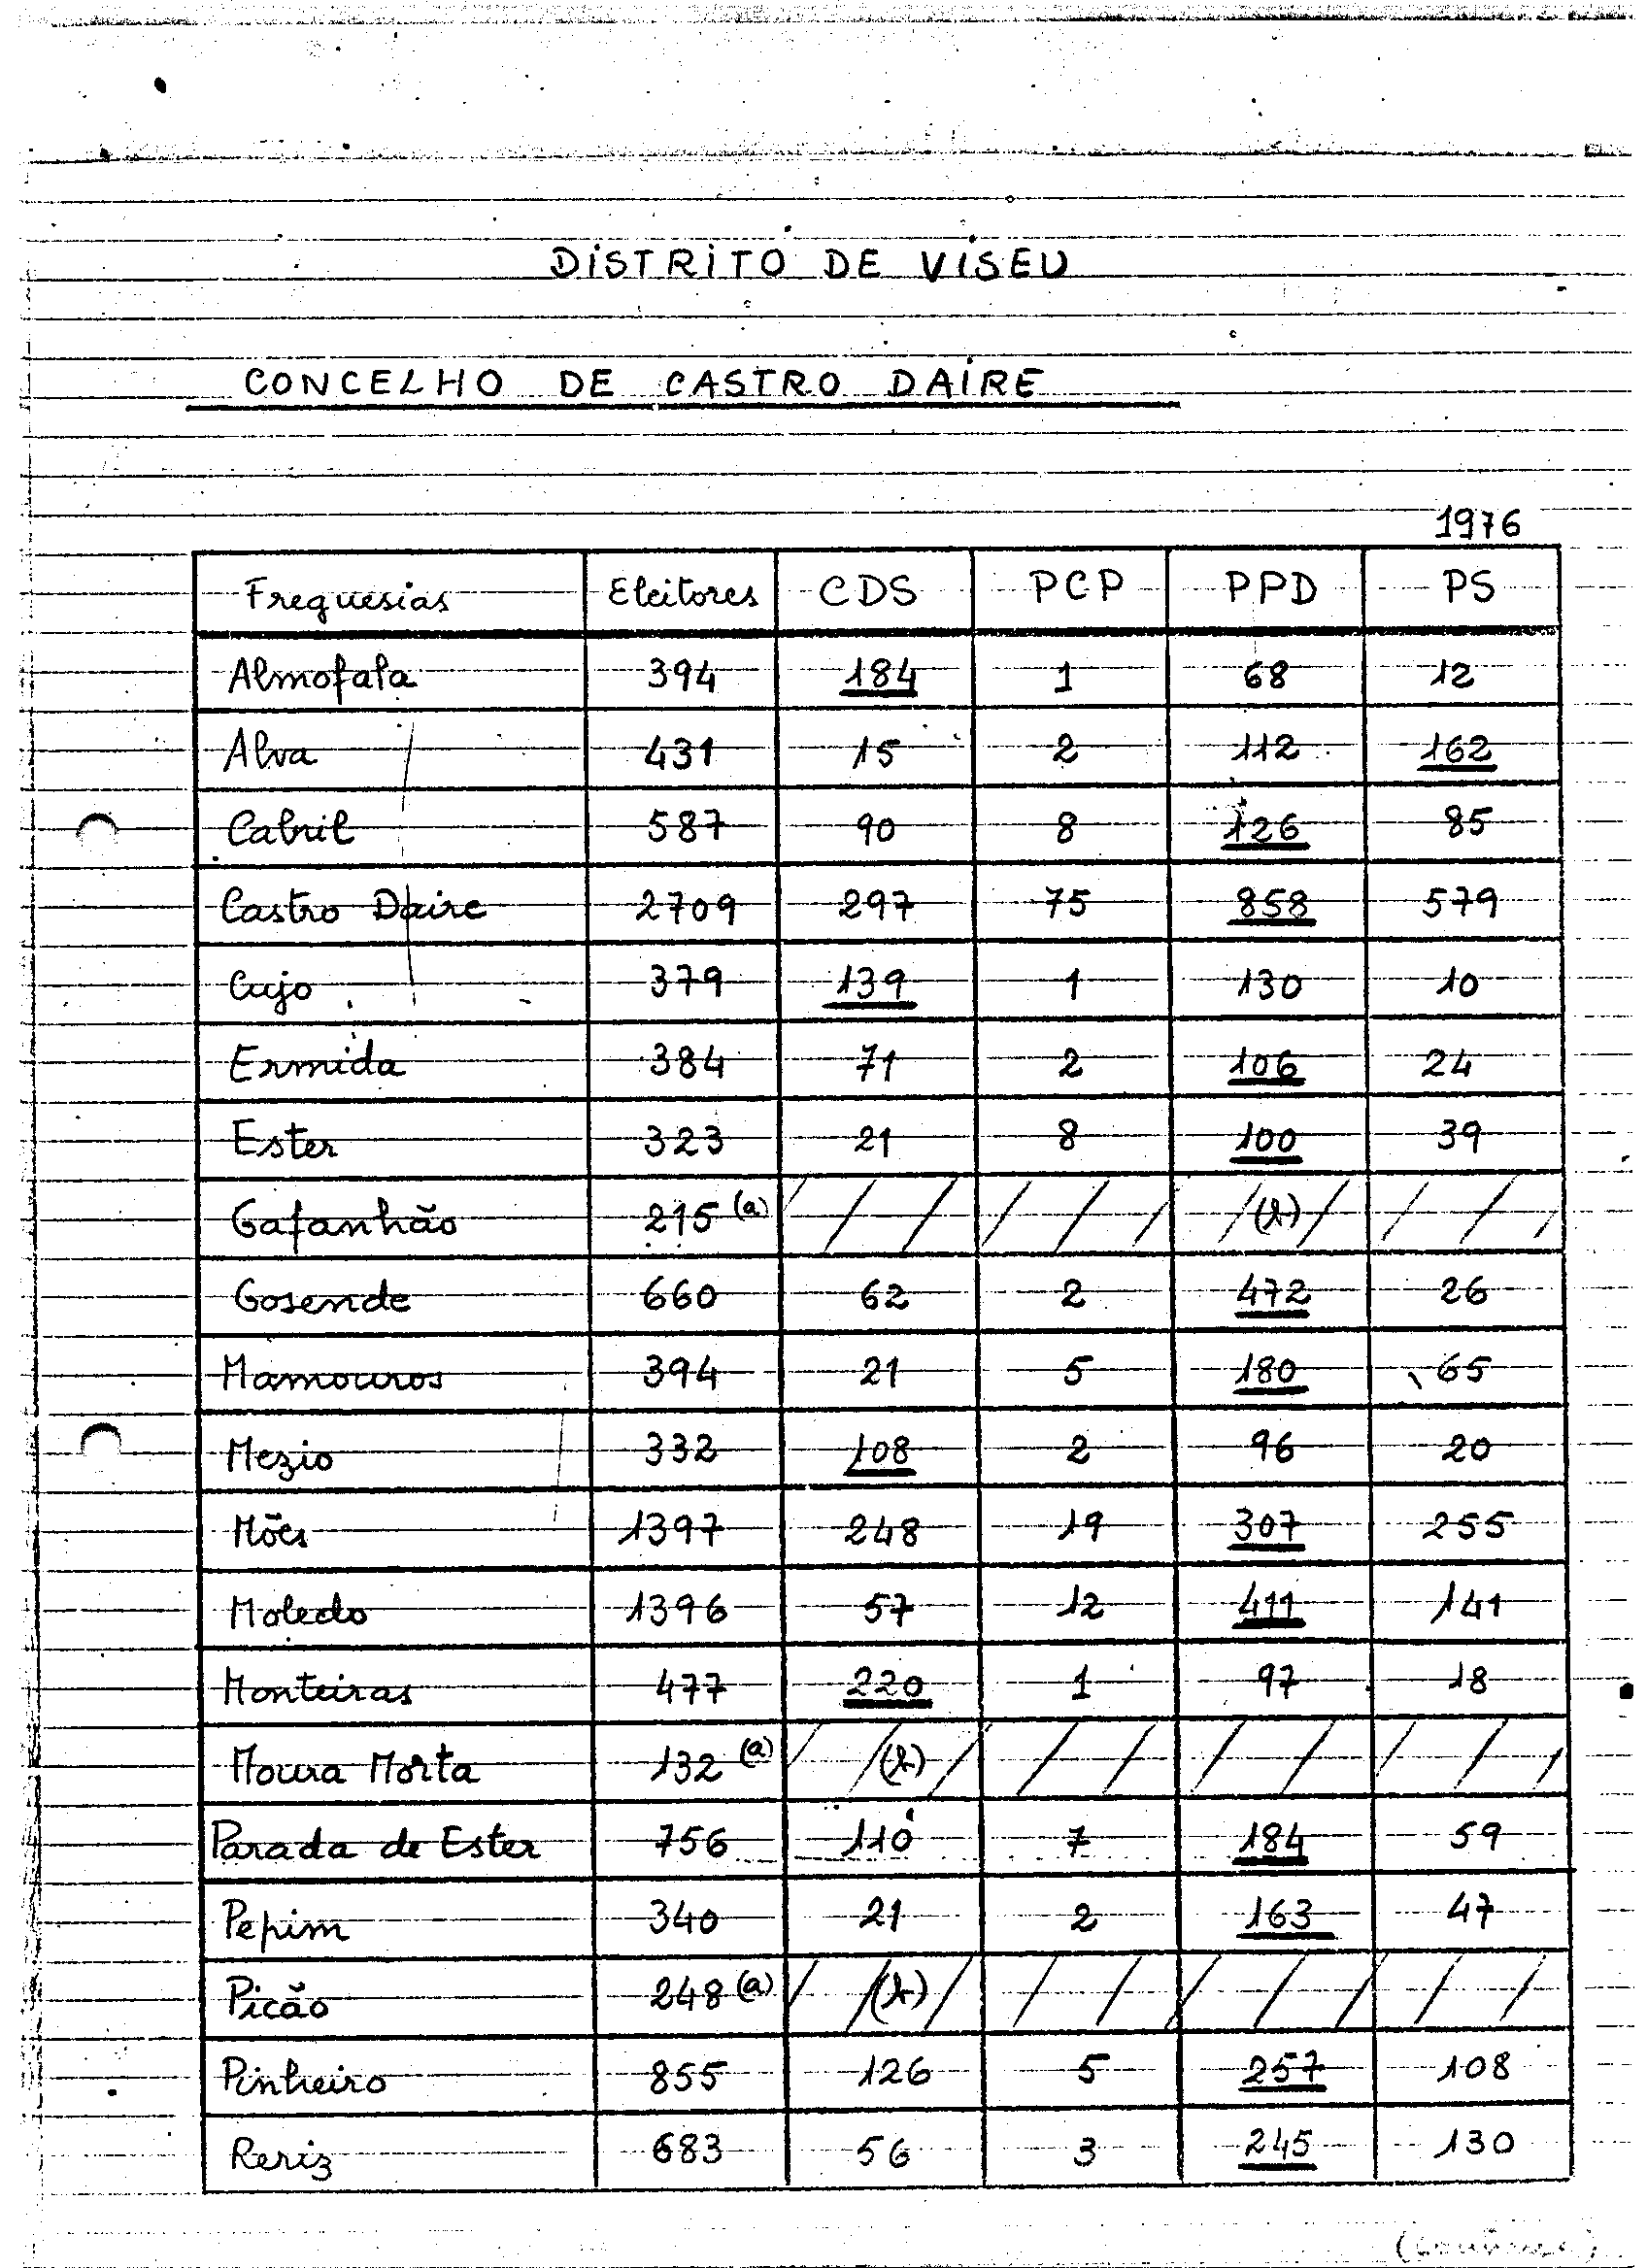 DISTRITO DE VISEU
CONCELHO DE CASTRO DAIRE
1976
Freguesias Eleitores CDS PCP PPD PS
Almofala 394 184 1 68 12
Alva 431 15 2 112 162
Cabril 587 90 8 126 85
Castro Daire 2709 297 75 858 579
Cujo 379 139 1 130 10
Ermida 384 71 2 106 24
Ester 323 21 8 100 39
Gafanhão 215 (a)
Gosende 660 62 2 472 26
Mamouros 394 21 5 180 65
Mezio 332 108 2 96 20
Mões 1397 248 19 307 255
Moledo 1396 57 12 411 141
Monteiras 477 220 1 97 18
Moura Morta 132 (a)
Parada de Ester 756 110 7 184 59
Pepim 340 21 2 163 47
Picão 248 (a)
Pinheiro 855 126 5 257 108
Reriz 683 56 3 245 130